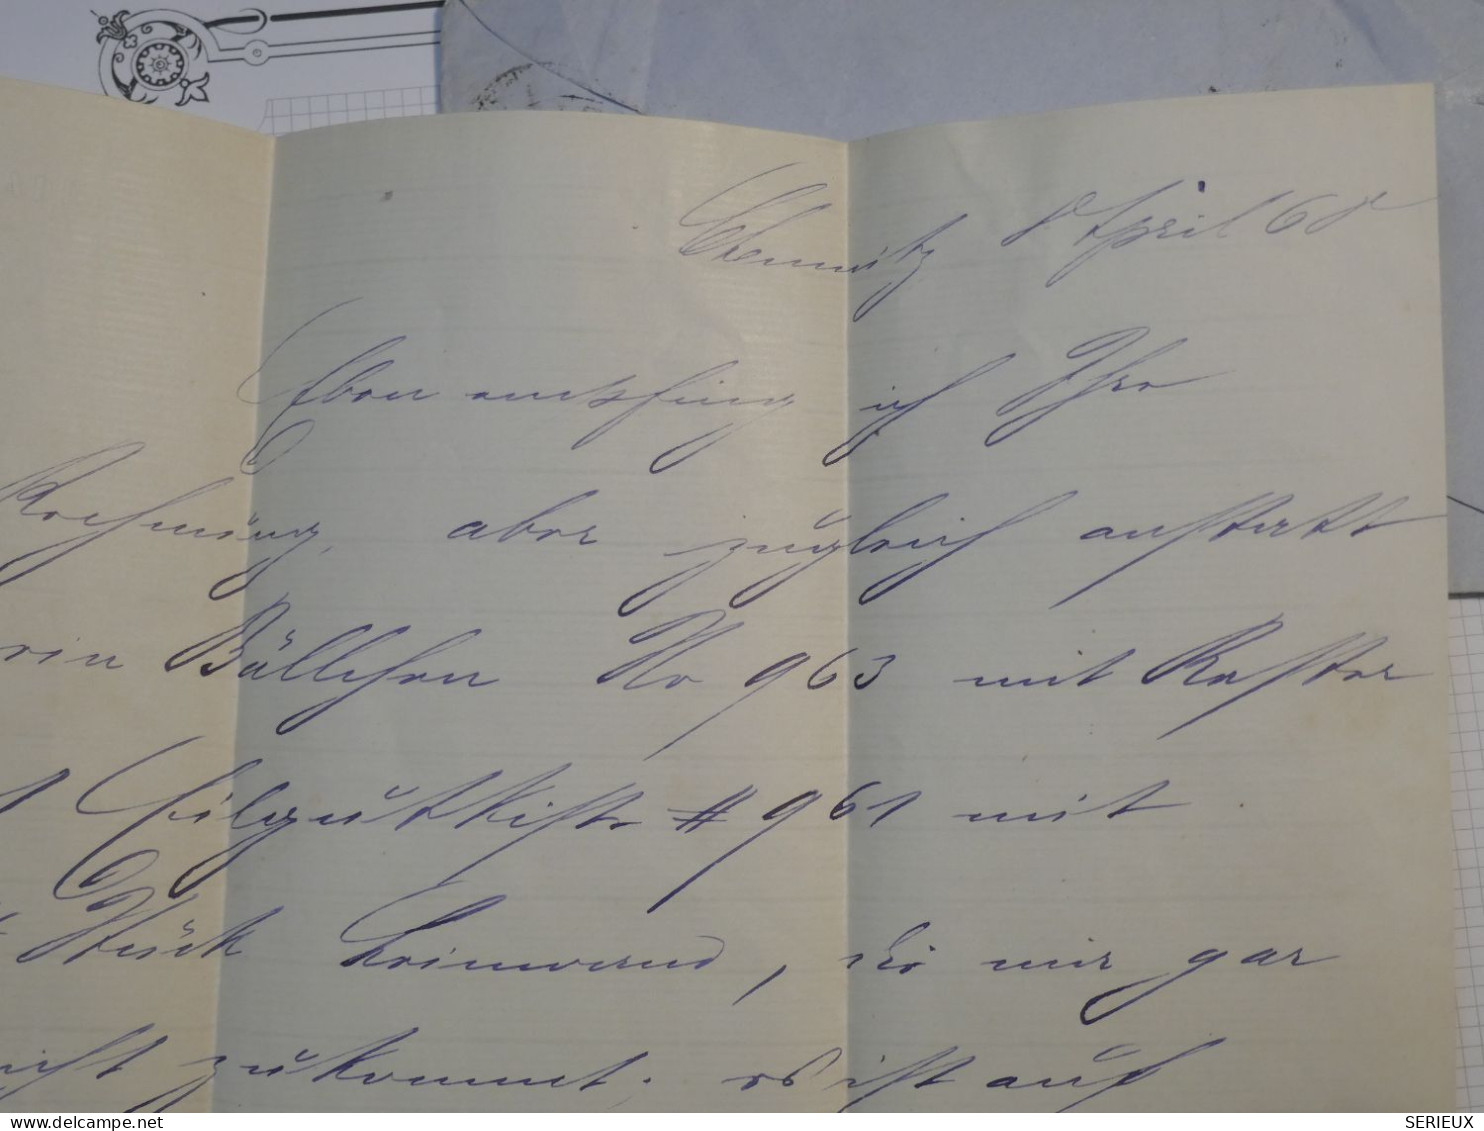 Chemnitz 8 April 68
Eben empfing ich Ihre
Rechnung, aber zugleich anstatt
ein Bällchen No 963 mit Kaster
1 Eilgutkiste # 961 mit
Stück Leinwand, die mir gar
nicht zukommt; es ist auf
SERIEUX